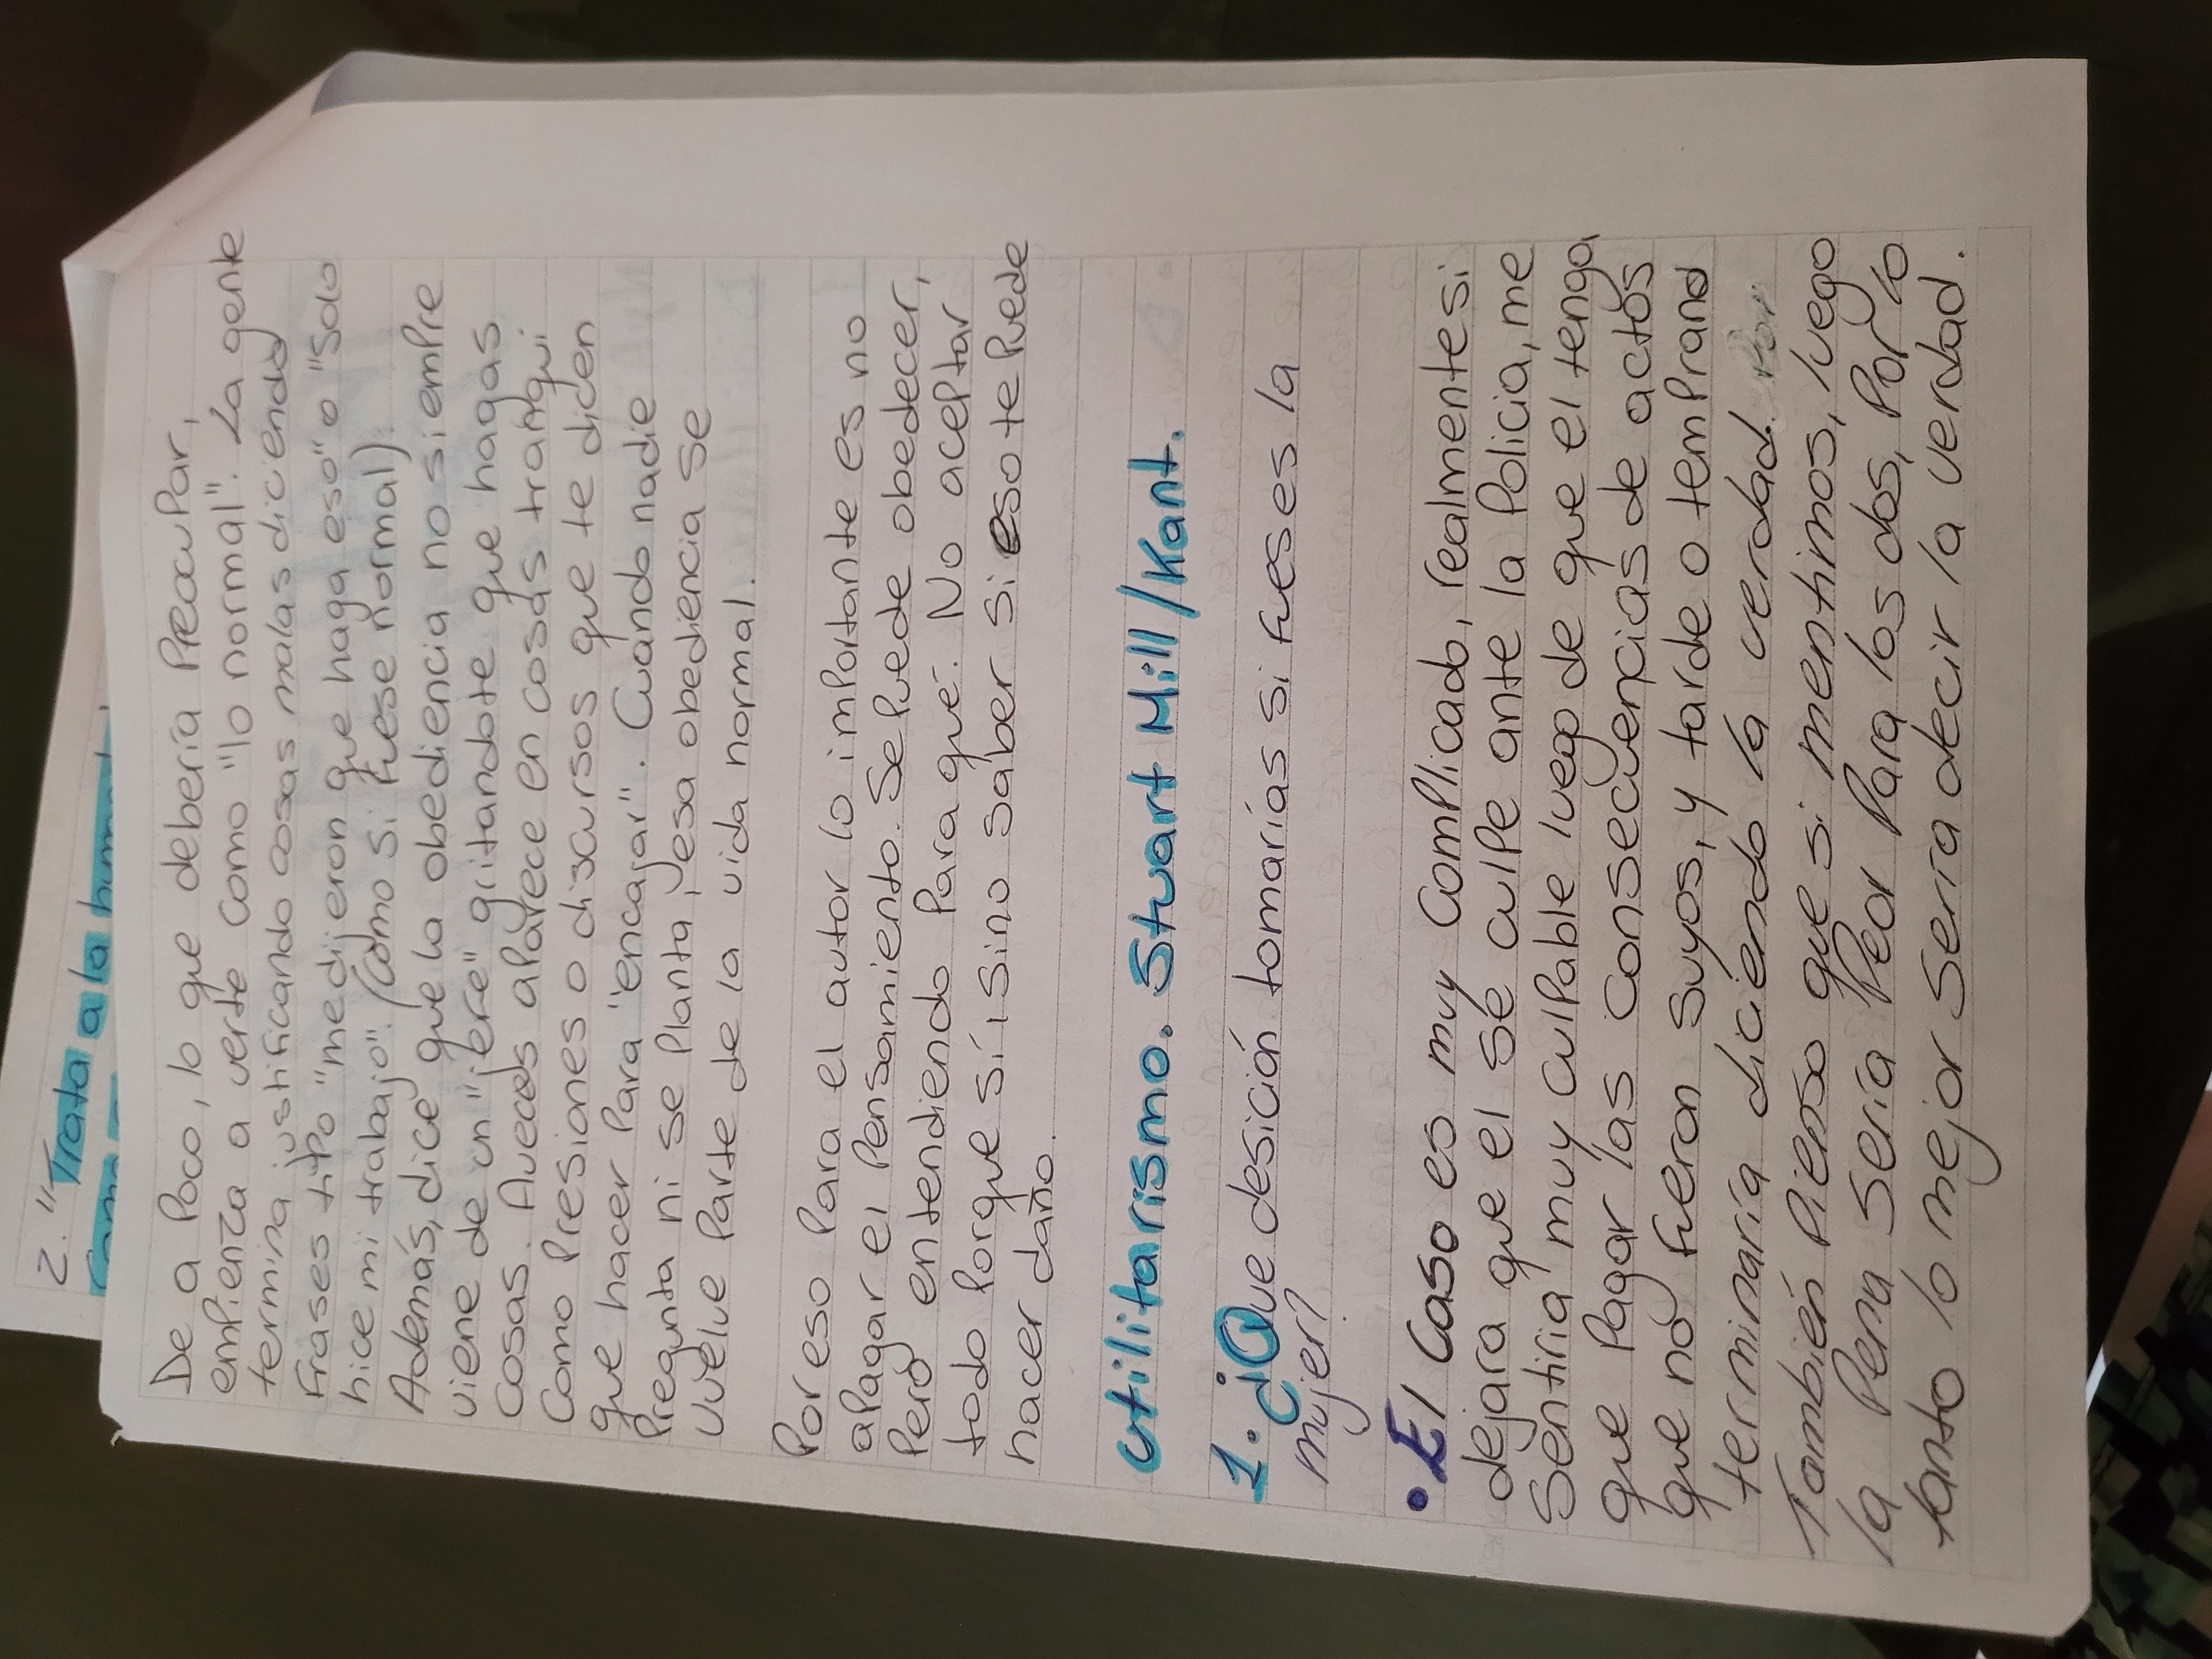 2. "Trata a la
De a poco, lo que debería preocupar,
empienza a verte como "lo normal". La gente
termina justificando cosas malas diciendo
frases tipo "me dijeron que haga eso" o "solo
hice mi trabajo". (como si fuese normal).
Además, dice que la obediencia no siempre
viene de un "jefe" gritandote que hagas
cosas. Aveces aparece en cosas tranqui
como presiones o discursos que te dicen
que hacer para "encajar". Cuando nadie
pregunta ni se planta, esa obediencia se
vuelve parte de la vida normal.
Por eso para el autor lo importante es no
apagar el pensamiento. Se puede obedecer,
pero entendiendo para qué. No aceptar
todo porque sí, sino saber si eso te puede
hacer daño.
Utilitarismo. Stuart Mill/Kant.
1. ¿Que desición tomarías si fueses la
mujer?
• El caso es muy complicado, realmente si
dejara que el se culpe ante la policia, me
sentiria muy culpable luego de que el tenga
que pagar las consecuencias de actos
que no fueron suyos, y tarde o temprano
terminaría diciendo la verdad.
También pienso que si mentimos, luego
la pena sería peor para los dos, por lo
tanto lo mejor sería decir la verdad.